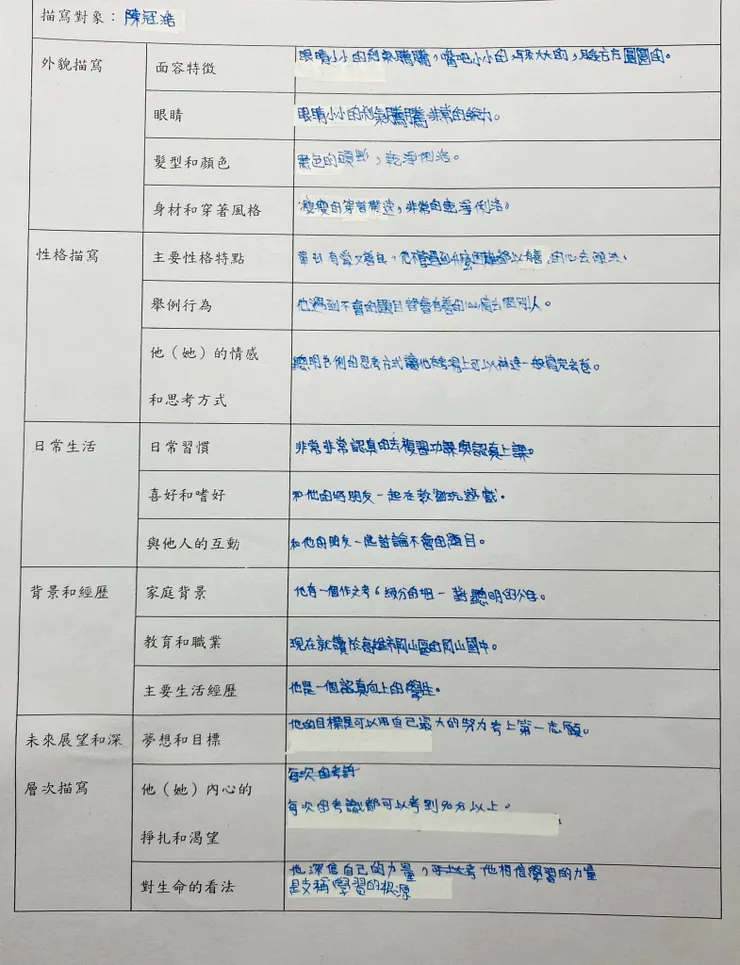 描寫對象：陳冠浩
外貌描寫
面容特徵
眼睛小小的利氣騰騰，嘴吧小小的，耳朵大大的，臉方方圓圓的。
眼睛
眼睛小小的利氣騰騰非常的銳力。
髮型和顏色
黑色的頭髮，乾淨俐洛。
身材和穿著風格
瘦瘦的穿著，非常的乾淨俐洛。
性格描寫
主要性格特點
有愛又善良，他不管遇到什麼困難都以有善的心去解決。
舉例行為
他遇到不會的題目都會有善的心情去問別人。
他（她）的情感
和思考方式
聰明伶俐的思考方式讓他在考場上可以神速一般寫完考卷。
日常生活
日常習慣
非常非常認真的去複習功課與認真上課。
喜好和嗜好
和他的好朋友一起在教室玩遊戲。
與他人的互動
和他的朋友一起討論不會的題目。
背景和經歷
家庭背景
他有一個作文考6級分的姐一對聰明的父母。
教育和職業
現在就讀於高雄市岡山區的岡山國中。
主要生活經歷
他是一個認真向上的學生。
未來展望和深
層次描寫
夢想和目標
他的目標是可以用自己最大的努力考上第一志願。
他（她）內心的
掙扎和渴望
每次的考試
每次的考試都可以考到90分以上。
對生命的看法
他深信自己的力量，可以考他相信學習的力量
是支稱學習的根源